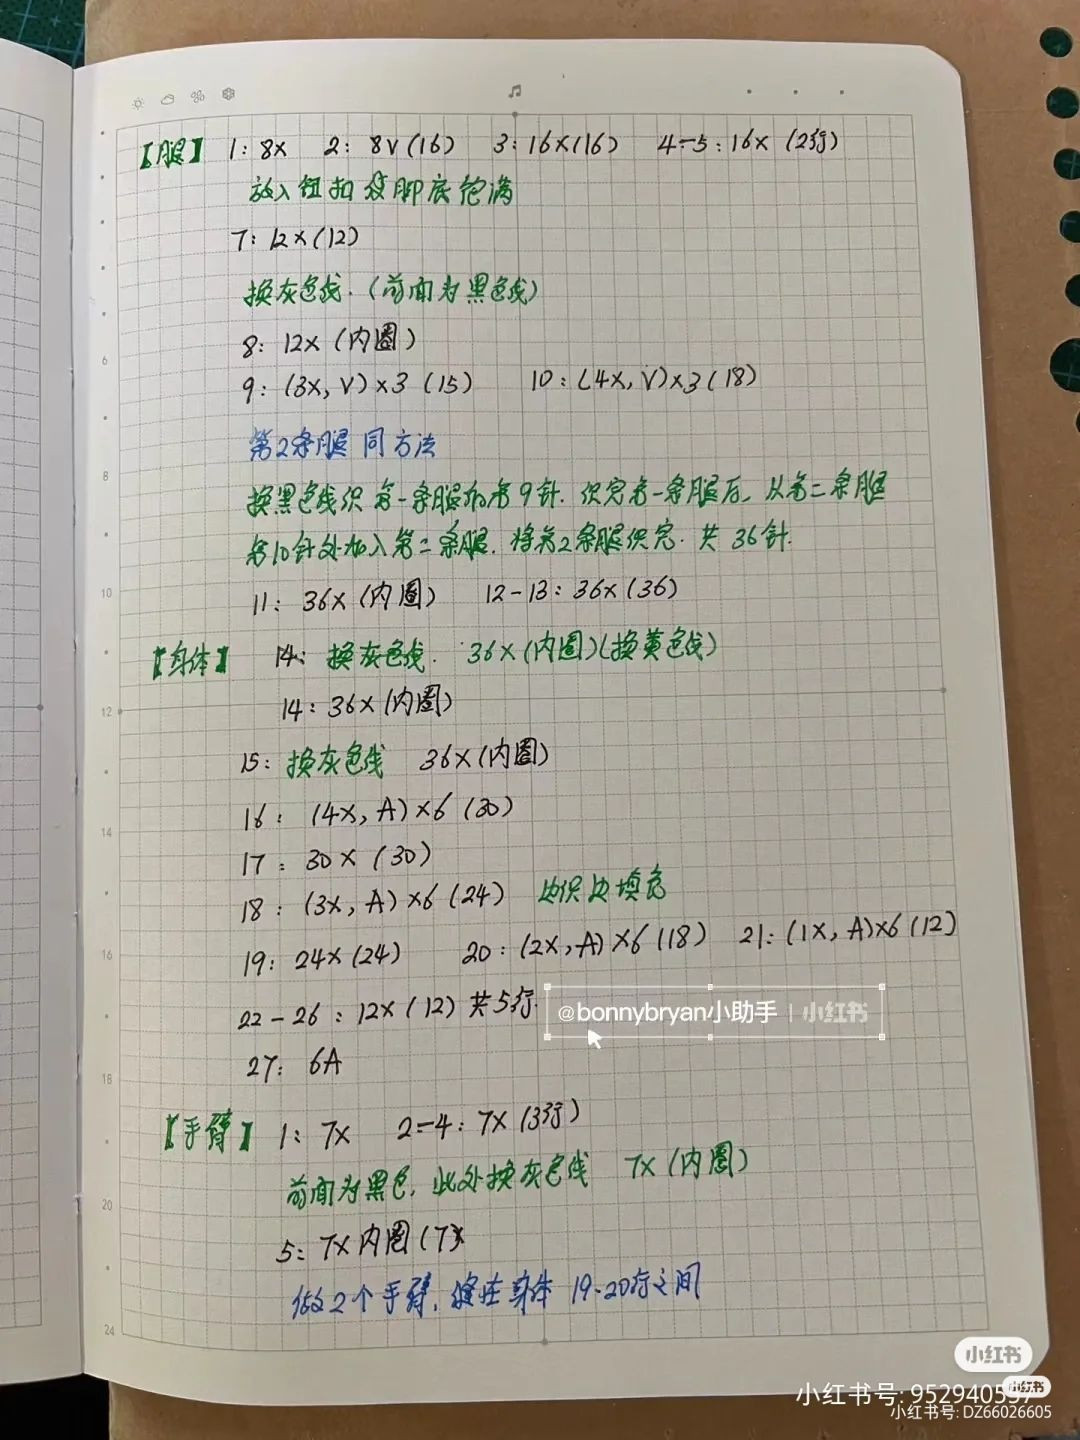 【腿】 1: 8X 2: 8V(16) 3: 16X(16) 4-5: 16X (2行)
放入钮扣 使脚底饱满
7: 12X(12)
换灰色线.(前面为黑色线)
8: 12X (内圈)
6
9: (3X, V)×3 (15) 10: (4X, V)×3(18)
第2条腿 同方法
8
换黑色线织 第一条腿的第9针. 织完第一条腿后, 从第二条腿
第10针处加入第二条腿. 将第2条腿织完. 共 36针.
10
11: 36X (内圈) 12-13: 36X(36)
【身体】 14: 换灰色线. 36X(内圈)(换黄色线)
12
14: 36X(内圈)
15: 换灰色线 36X(内圈)
16: (4X, A)×6 (30)
14
17: 30X (30)
18: (3X, A)×6 (24) 边织边填充
19: 24X(24) 20: (2X, A)×6 (18) 21: (1X, A)×6 (12)
16
22-26: 12X(12) 共5行.
@bonnybryan小助手 | 小红书
27: 6A
18
【手臂】 1: 7X 2-4: 7X (3行)
前面为黑色, 此处换灰色线 7X (内圈)
20
5: 7X 内圈 (7)
做2个手臂, 缝在身体 19-20行之间
24
小红书
小红书号: 952940597
小红书
小红书号: DZ66026605